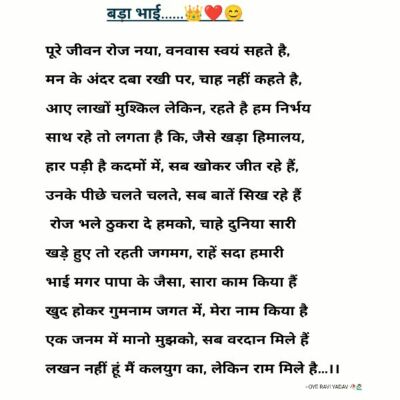 बड़ा भाई......👑❤️😊
पूरे जीवन रोज नया, वनवास स्वयं सहते है,
मन के अंदर दबा रखी पर, चाह नहीं कहते है,
आए लाखों मुश्किल लेकिन, रहते है हम निर्भय
साथ रहे तो लगता है कि, जैसे खड़ा हिमालय,
हार पड़ी है कदमों में, सब खोकर जीत रहे हैं,
उनके पीछे चलते चलते, सब बातें सिख रहे हैं
रोज भले ठुकरा दे हमको, चाहे दुनिया सारी
खड़े हुए तो रहती जगमग, राहें सदा हमारी
भाई मगर पापा के जैसा, सारा काम किया हैं
खुद होकर गुमनाम जगत में, मेरा नाम किया है
एक जनम में मानो मुझको, सब वरदान मिले हैं
लखन नहीं हूं मैं कलयुग का, लेकिन राम मिले है...।।
-OYE RAVI YADAV